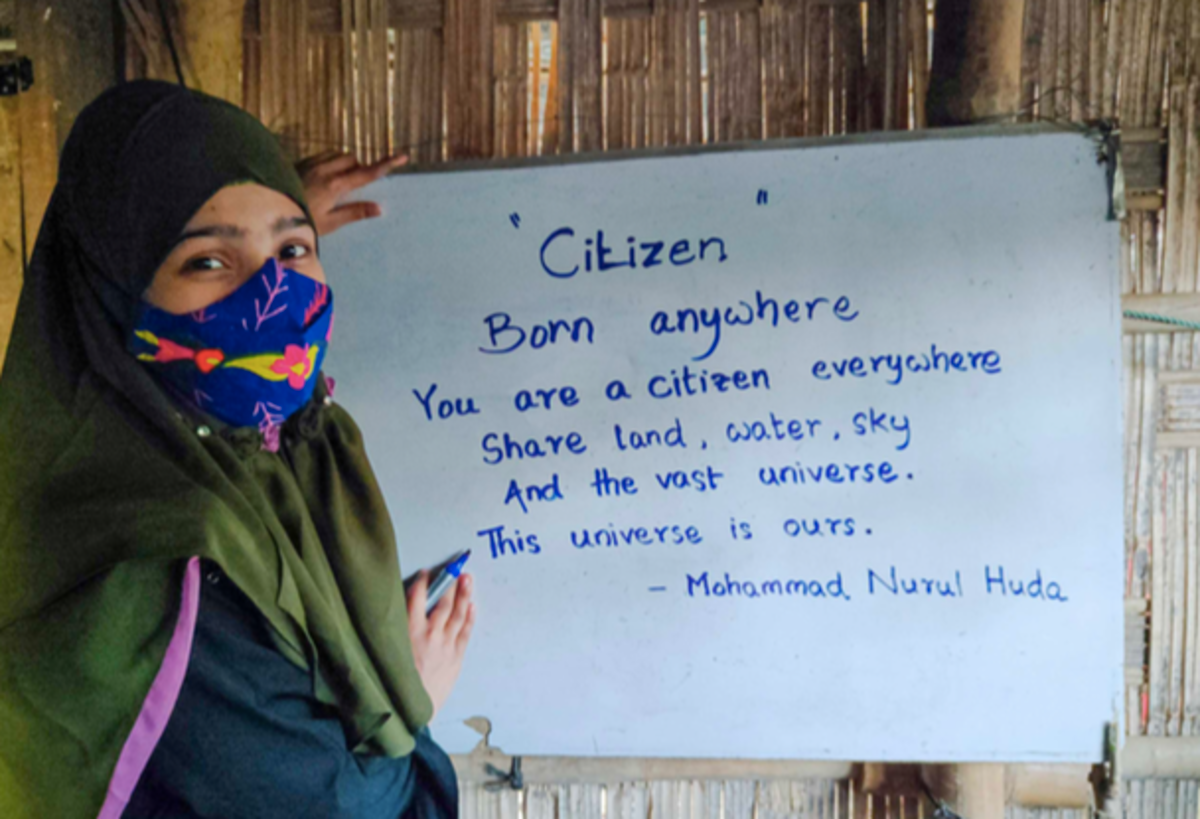 "Citizen"
Born anywhere
You are a citizen everywhere
Share land, water, sky
And the vast universe.
This universe is ours.
- Mohammad Nurul Huda